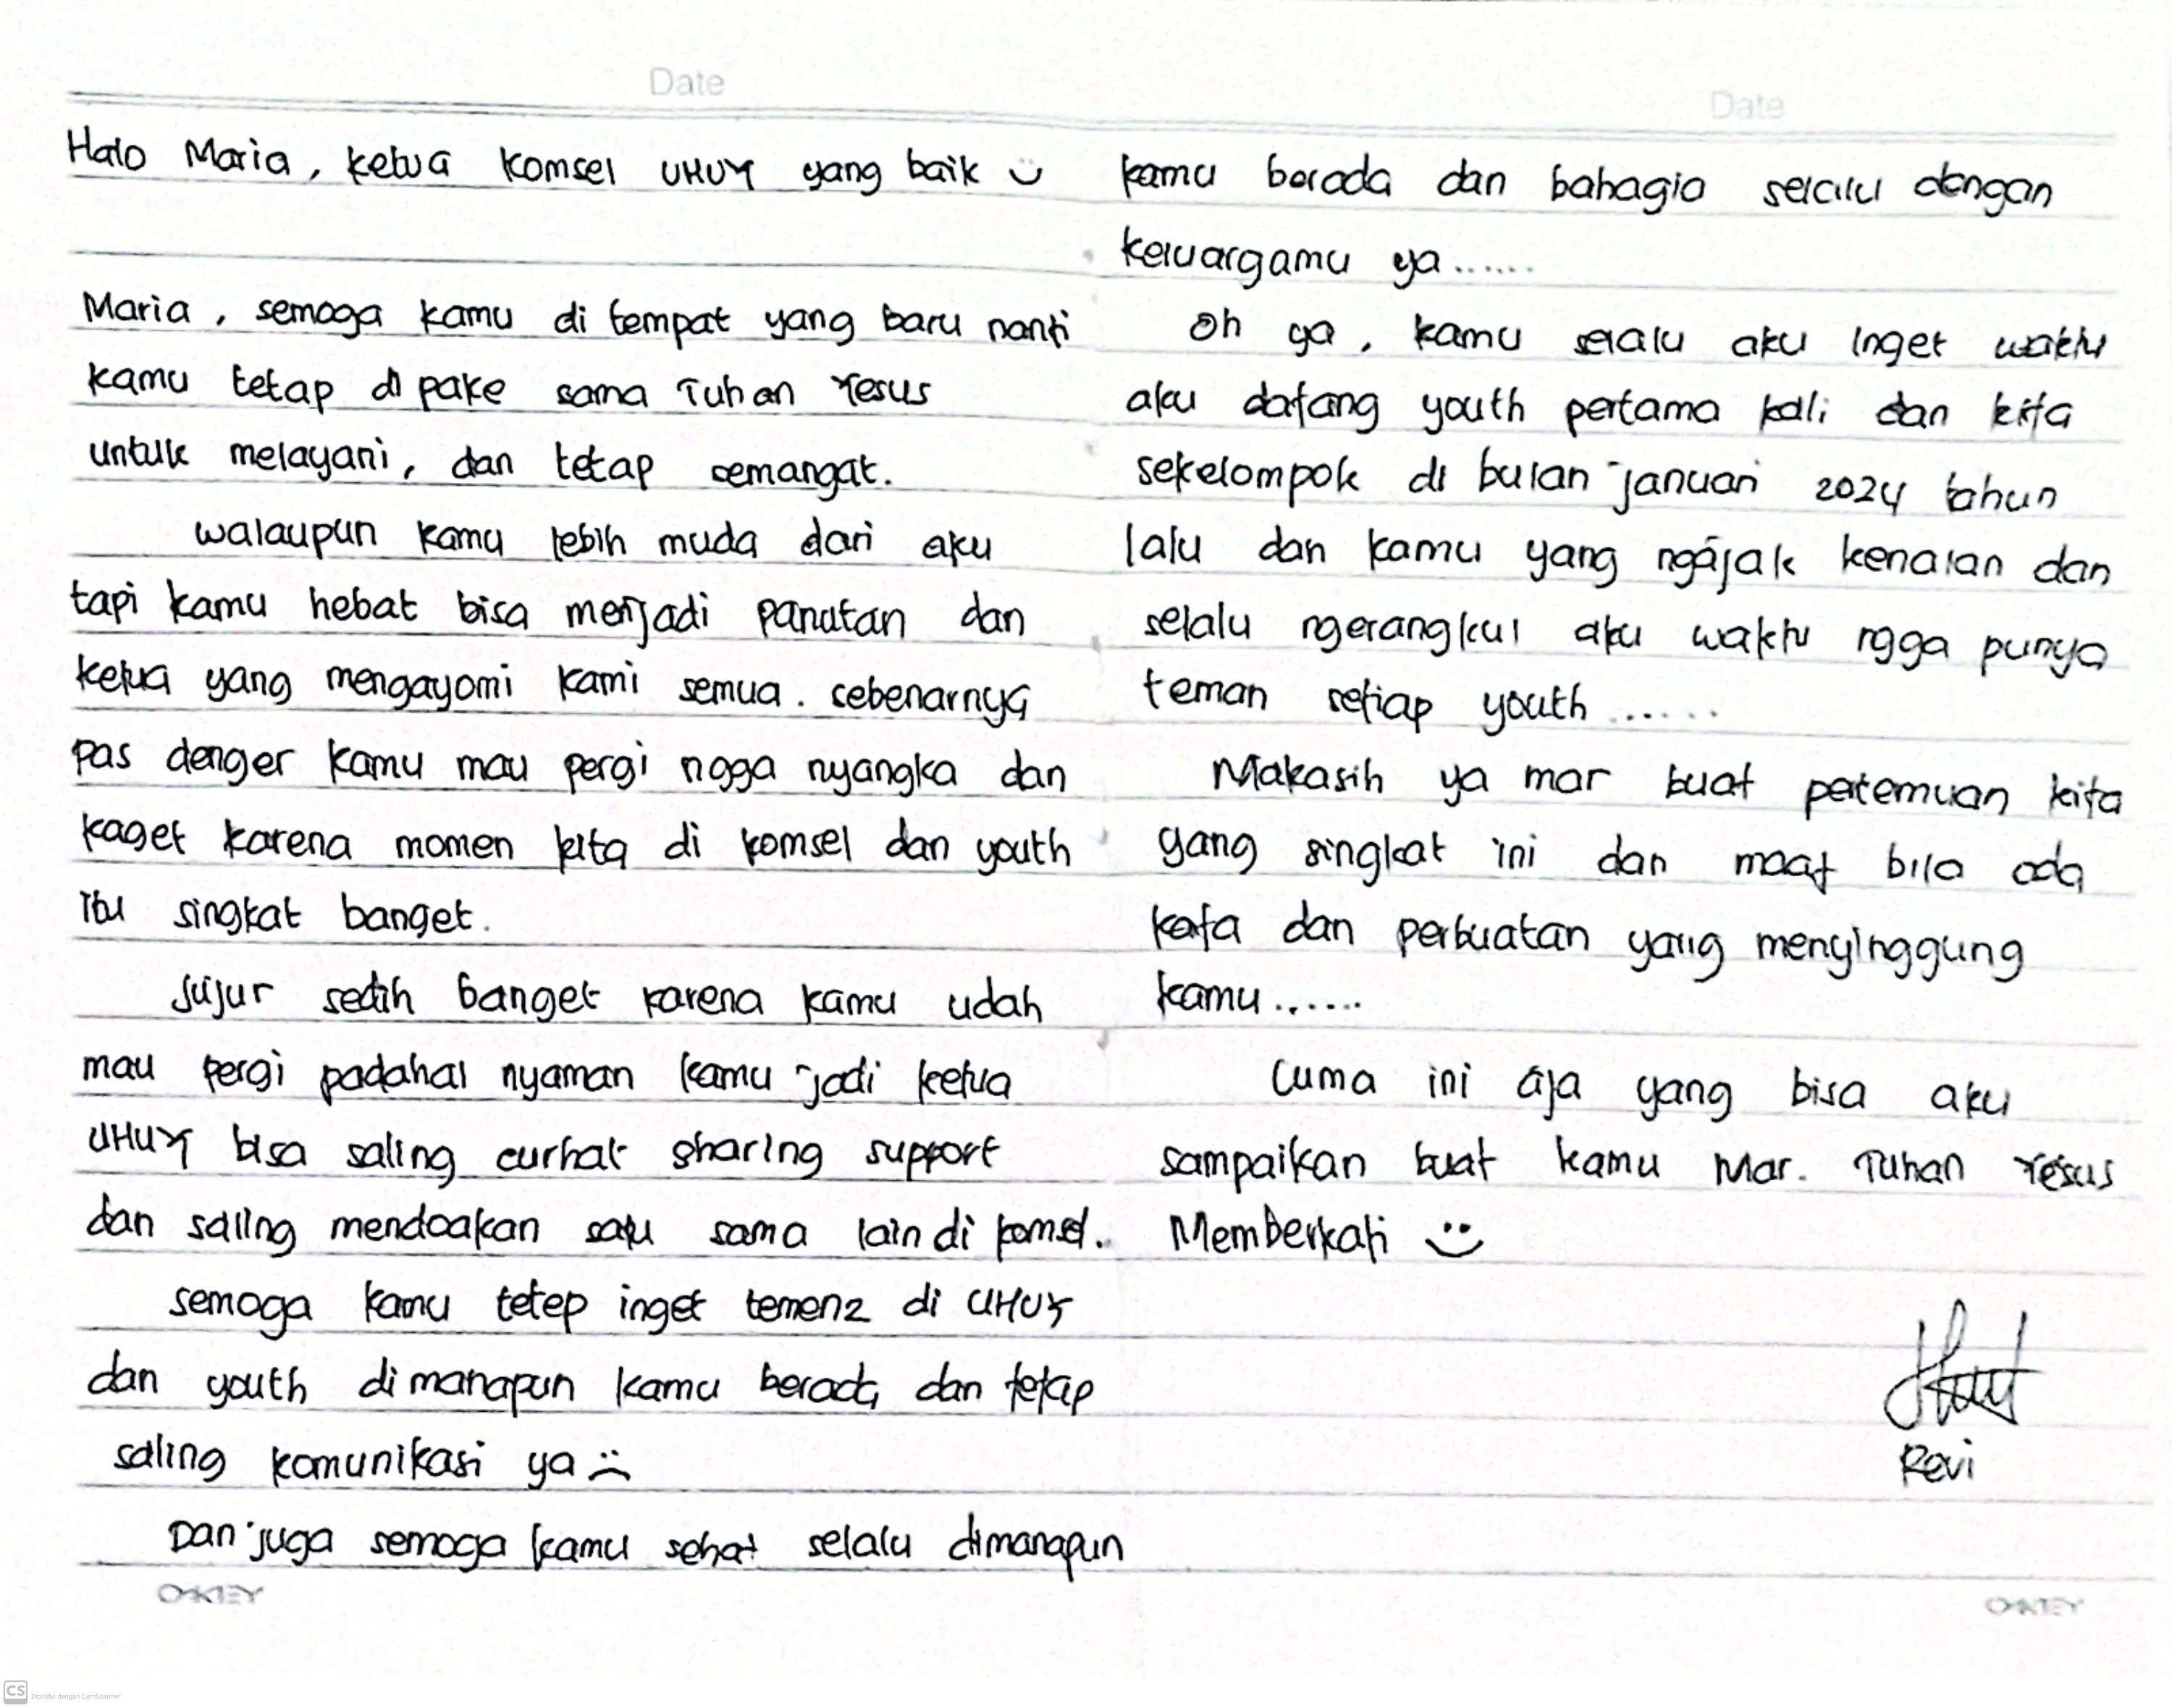 Date
Halo Maria, ketua komsel UHUY yang baik
Maria, semoga kamu di tempat yang baru nanti
kamu tetap di pake sama Tuhan Yesus
untuk melayani, dan tetap semangat.
walaupun kamu lebih muda dari aku
tapi kamu hebat bisa menjadi panutan dan
ketua yang mengayomi kami semua. sebenarnya
pas denger kamu mau pergi ngga nyangka dan
kaget karena momen kita di komsel dan youth
itu singkat banget.
Jujur sedih banget karena kamu udah
mau pergi padahal nyaman kamu jadi ketua
UHUY bisa saling curhat sharing support
dan saling mendoakan satu sama lain di komsel.
semoga kamu tetep inget temenz di UHUY
dan youth dimanapun kamu berada dan tetap
saling komunikasi ya
Dan juga semoga kamu sehat selalu dimanapun
OKEY
Date
kamu berada dan bahagia selalu dengan
keluargamu ya......
Oh ya, kamu selalu aku inget waktu
aku datang youth pertama kali dan kita
sekelompok di bulan januari 2024 tahun
lalu dan kamu yang ngajak kenalan dan
selalu ngerangkul aku waktu ngga punya
teman setiap youth ......
Makasih ya mar buat pertemuan kita
yang singkat ini dan maaf bila ada
kata dan perbuatan yang menyinggung
kamu......
Cuma ini aja yang bisa aku
sampaikan buat kamu Mar. Tuhan Yesus
Memberkati
Revi
OKEY
CS Dipindai dengan CamScanner